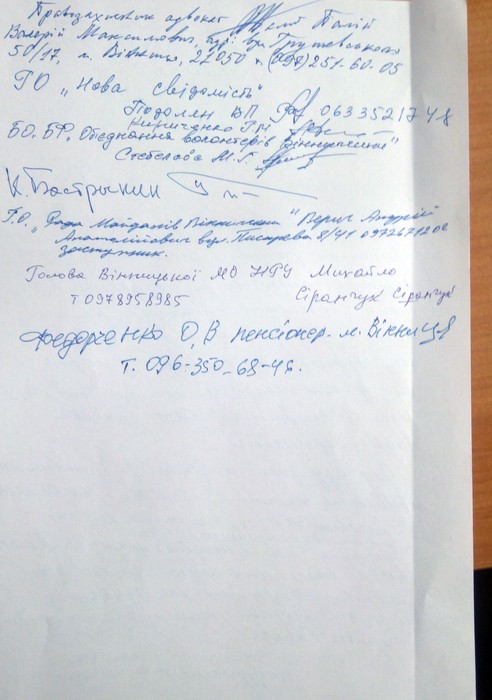 Правозахисник адвокат Палій
Валерій Максимович, вул. Грушевського
50/17, м. Вінниця, 21050 т. (097) 251-60-05
ГО „Нова Свідомість"
Подолян В П 0633521748
Кириченко Г М
БО. БФ. Обєднання волонтерів Вінниччини"
М. Г.
К. Бастрыкин
Г.О. „Рада Майданів Вінниччини" Андрій
Анатолійович вул. 8/41
заступник.
Голова Вінницької МО НРУ Михайло
т 0978958985 Сіранчук Сіранчук
Федорченко О, В пенсіонер. м. Вінниця
т. 096-350-68-46.